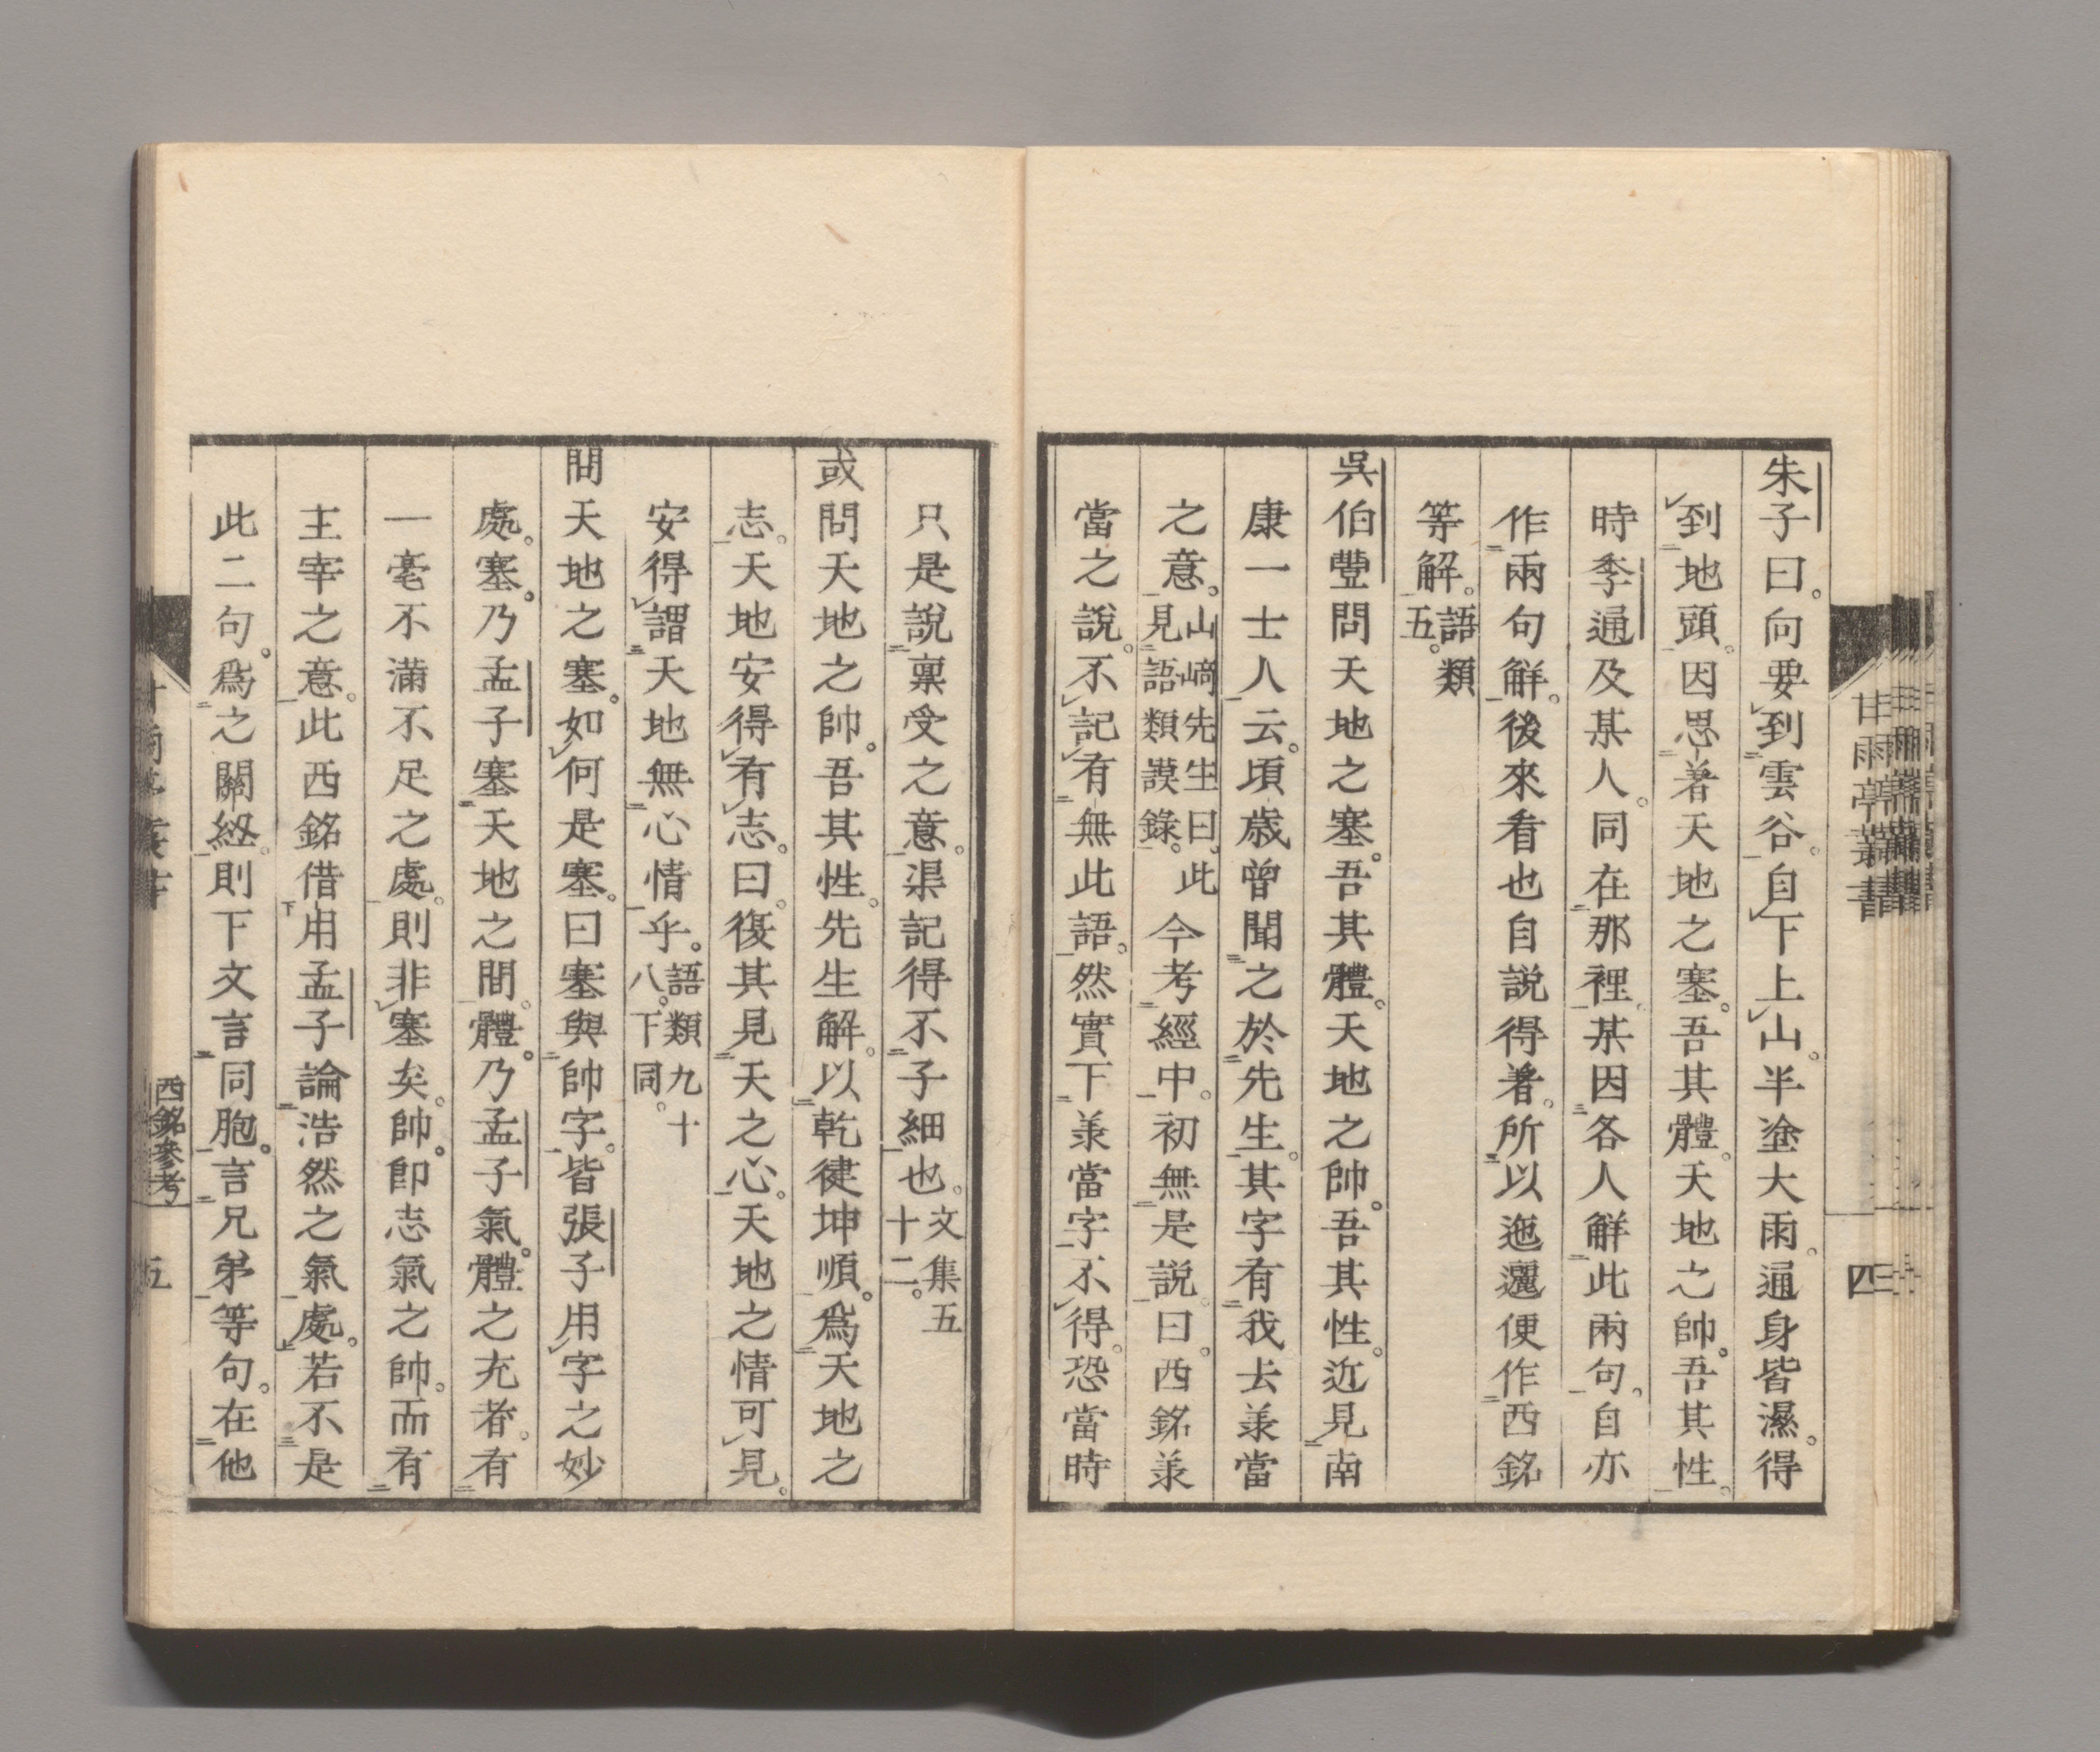 朱子曰。向要到雲谷。自下上山。半塗大雨。通身皆濕。得
到地頭。因思著天地之塞。吾其體。天地之帥。吾其性。
時季通及某人。同在那裡。某因各人解此兩句。自亦
作兩句解。後來看也自説得著。所以迤邐便作西銘
等解。語類五。
吳伯豐問天地之塞。吾其體。天地之帥。吾其性。近見南
康一士人云。頃歳曾聞之於先生。其字有我去義當
之意。山﨑先生曰。此見語類謨錄。今考經中。初無是説。曰。西銘義
當之説。不記有無此語。然實下義當字不得。恐當時
只是説稟受之意。渠記得不子細也。文集五十二。
或問天地之帥。吾其性。先生解。以乾健坤順。爲天地之
志。天地安得有志。曰。復其見天之心。天地之情可見。
安得謂天地無心情乎。語類九十八。下同。
問天地之塞。如何是塞。曰塞與帥字。皆張子用字之妙
處。塞。乃孟子塞天地之間。體。乃孟子氣。體之充者。有
一毫不滿不足之處。則非塞矣。帥。即志氣之帥。而有
主宰之意。此西銘借用孟子論浩然之氣處。若不是
此二句。爲之關紐。則下文言同胞。言兄弟。等句。在他
甘雨亭叢書
四
西銘參考
五